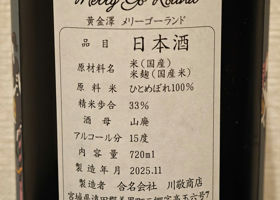 Merry Go Round
黄金澤 メリーゴーランド
品目 日本酒
原材料名 米(国産)
米麹(国産米)
原料米 ひとめぼれ100%
精米歩合 33%
酒母 山廃
アルコール分 15度
内容量 720ml
製造年月 2025.11
製造者 合名会社 川敬商店
宮城県遠田郡美里町二郷字高玉六号7